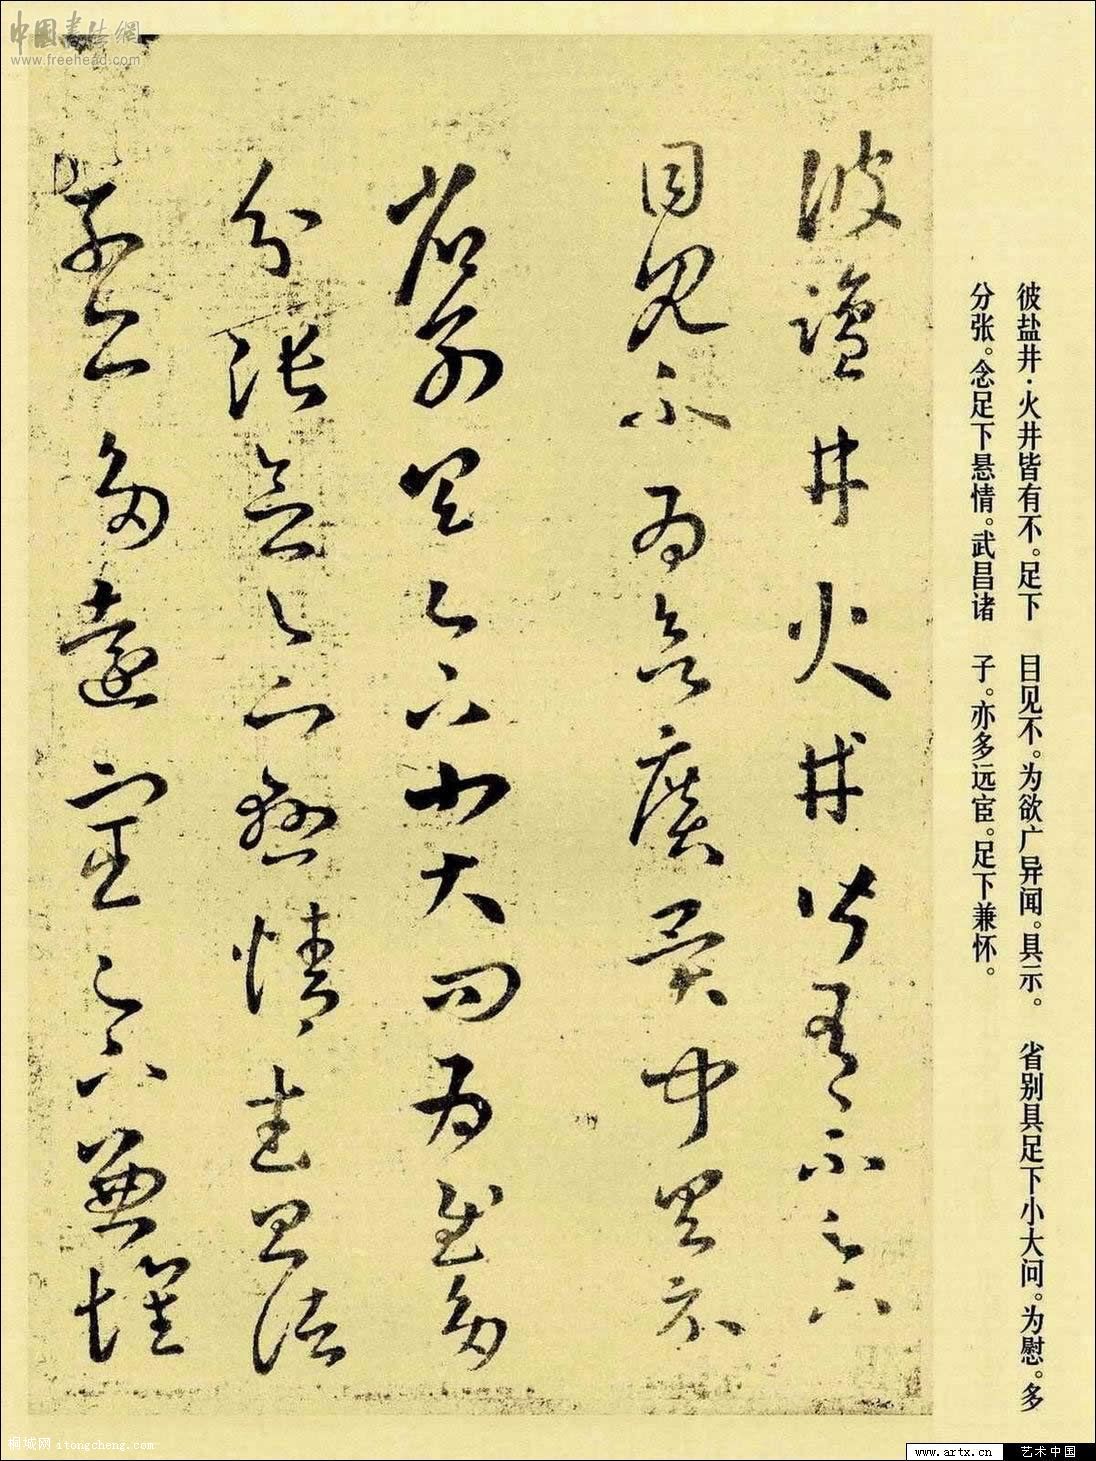 中國書法網
www.freehead.com
彼盐井·火井皆有不。足下 目见不。为欲广异闻。具示。 省别具足下小大问。为慰。多
分张。念足下悬情。武昌诸 子。亦多远宦。足下兼怀。
彼鹽井火井皆有不足下
目見不為欲廣異聞具示
省別具足下小大問為慰多
分張念足下懸情武昌諸
子亦多遠宦足下兼懷
桐城网 itongcheng.com
www.artx.cn 艺术中国